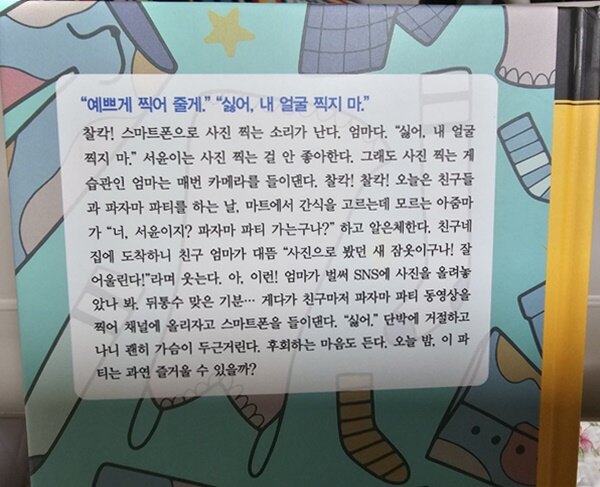 “예쁘게 찍어 줄게.” “싫어, 내 얼굴 찍지 마.”
찰칵! 스마트폰으로 사진 찍는 소리가 난다. 엄마다. “싫어, 내 얼굴
찍지 마.” 서윤이는 사진 찍는 걸 안 좋아한다. 그래도 사진 찍는 게
습관인 엄마는 매번 카메라를 들이댄다. 찰칵! 찰칵! 오늘은 친구들
과 파자마 파티를 하는 날, 마트에서 간식을 고르는데 모르는 아줌마
가 “너, 서윤이지? 파자마 파티 가는구나?” 하고 알은체한다. 친구네
집에 도착하니 친구 엄마가 대뜸 “사진으로 봤던 새 잠옷이구나! 잘
어울린다!”라며 웃는다. 아, 이런! 엄마가 벌써 SNS에 사진을 올려놓
았나 봐. 뒤통수 맞은 기분… 게다가 친구마저 파자마 파티 동영상을
찍어 채널에 올리자고 스마트폰을 들이댄다. “싫어.” 단박에 거절하고
나니 괜히 가슴이 두근거린다. 후회하는 마음도 든다. 오늘 밤, 이 파
티는 과연 즐거울 수 있을까?